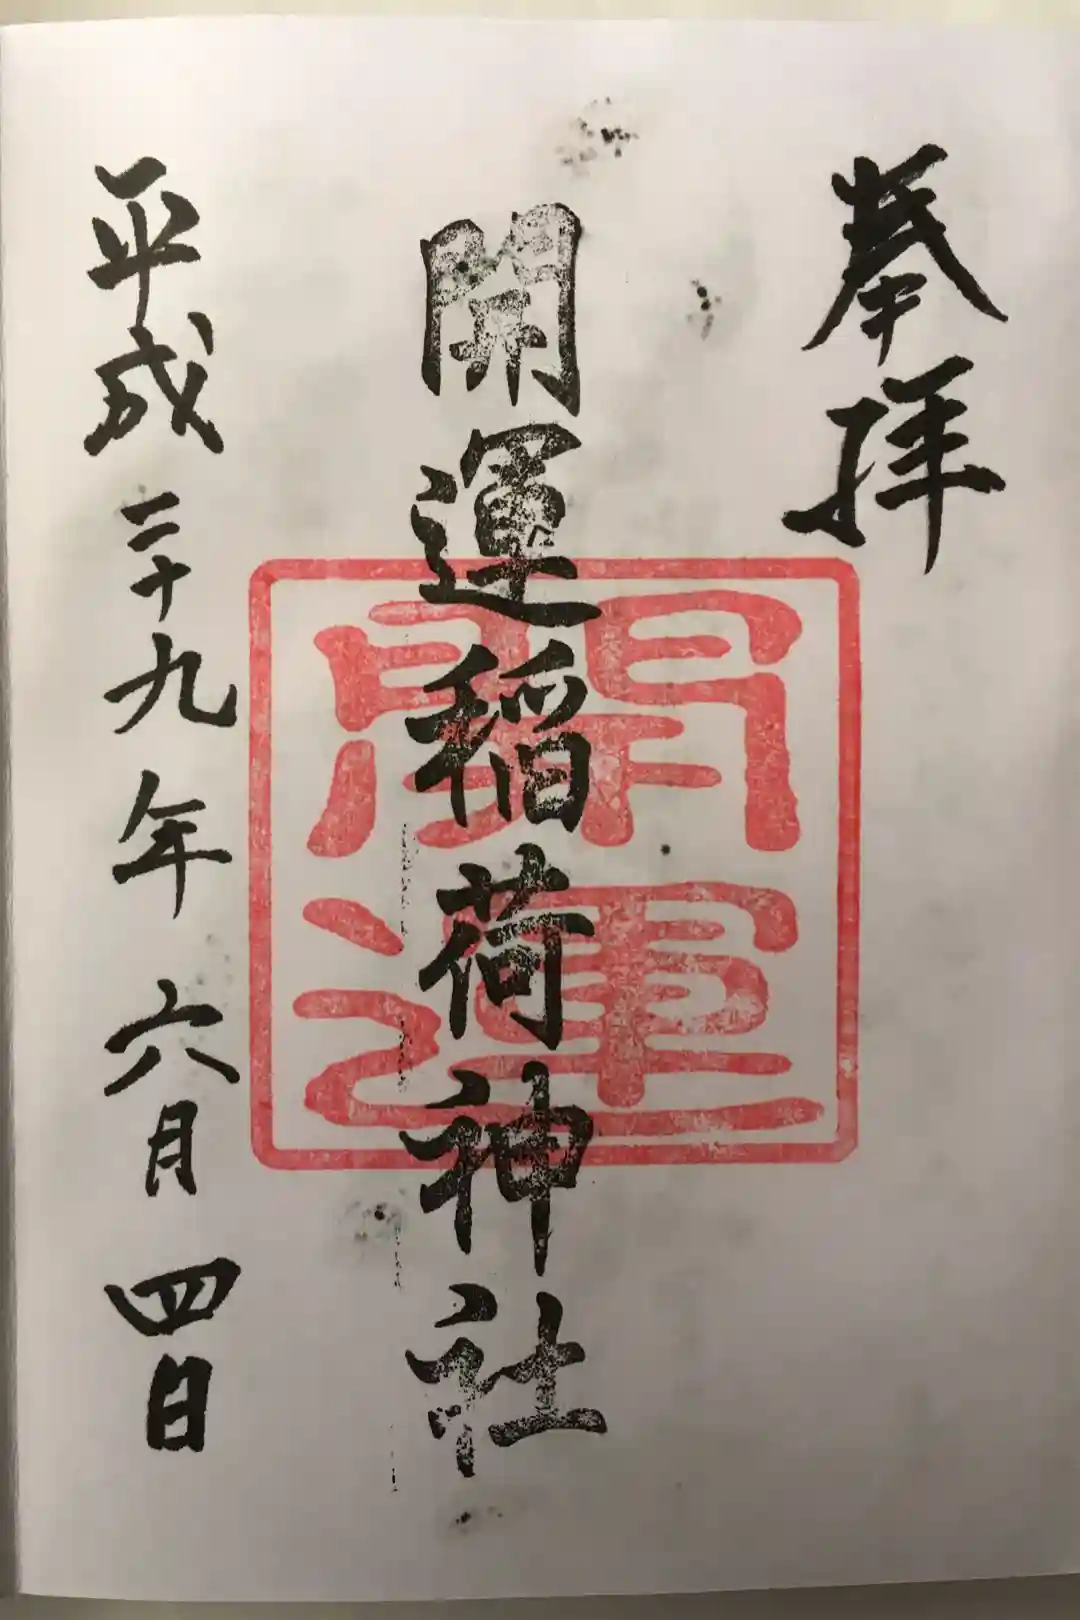 奉拝
開運稲荷神社
開運
平成二十九年六月四日